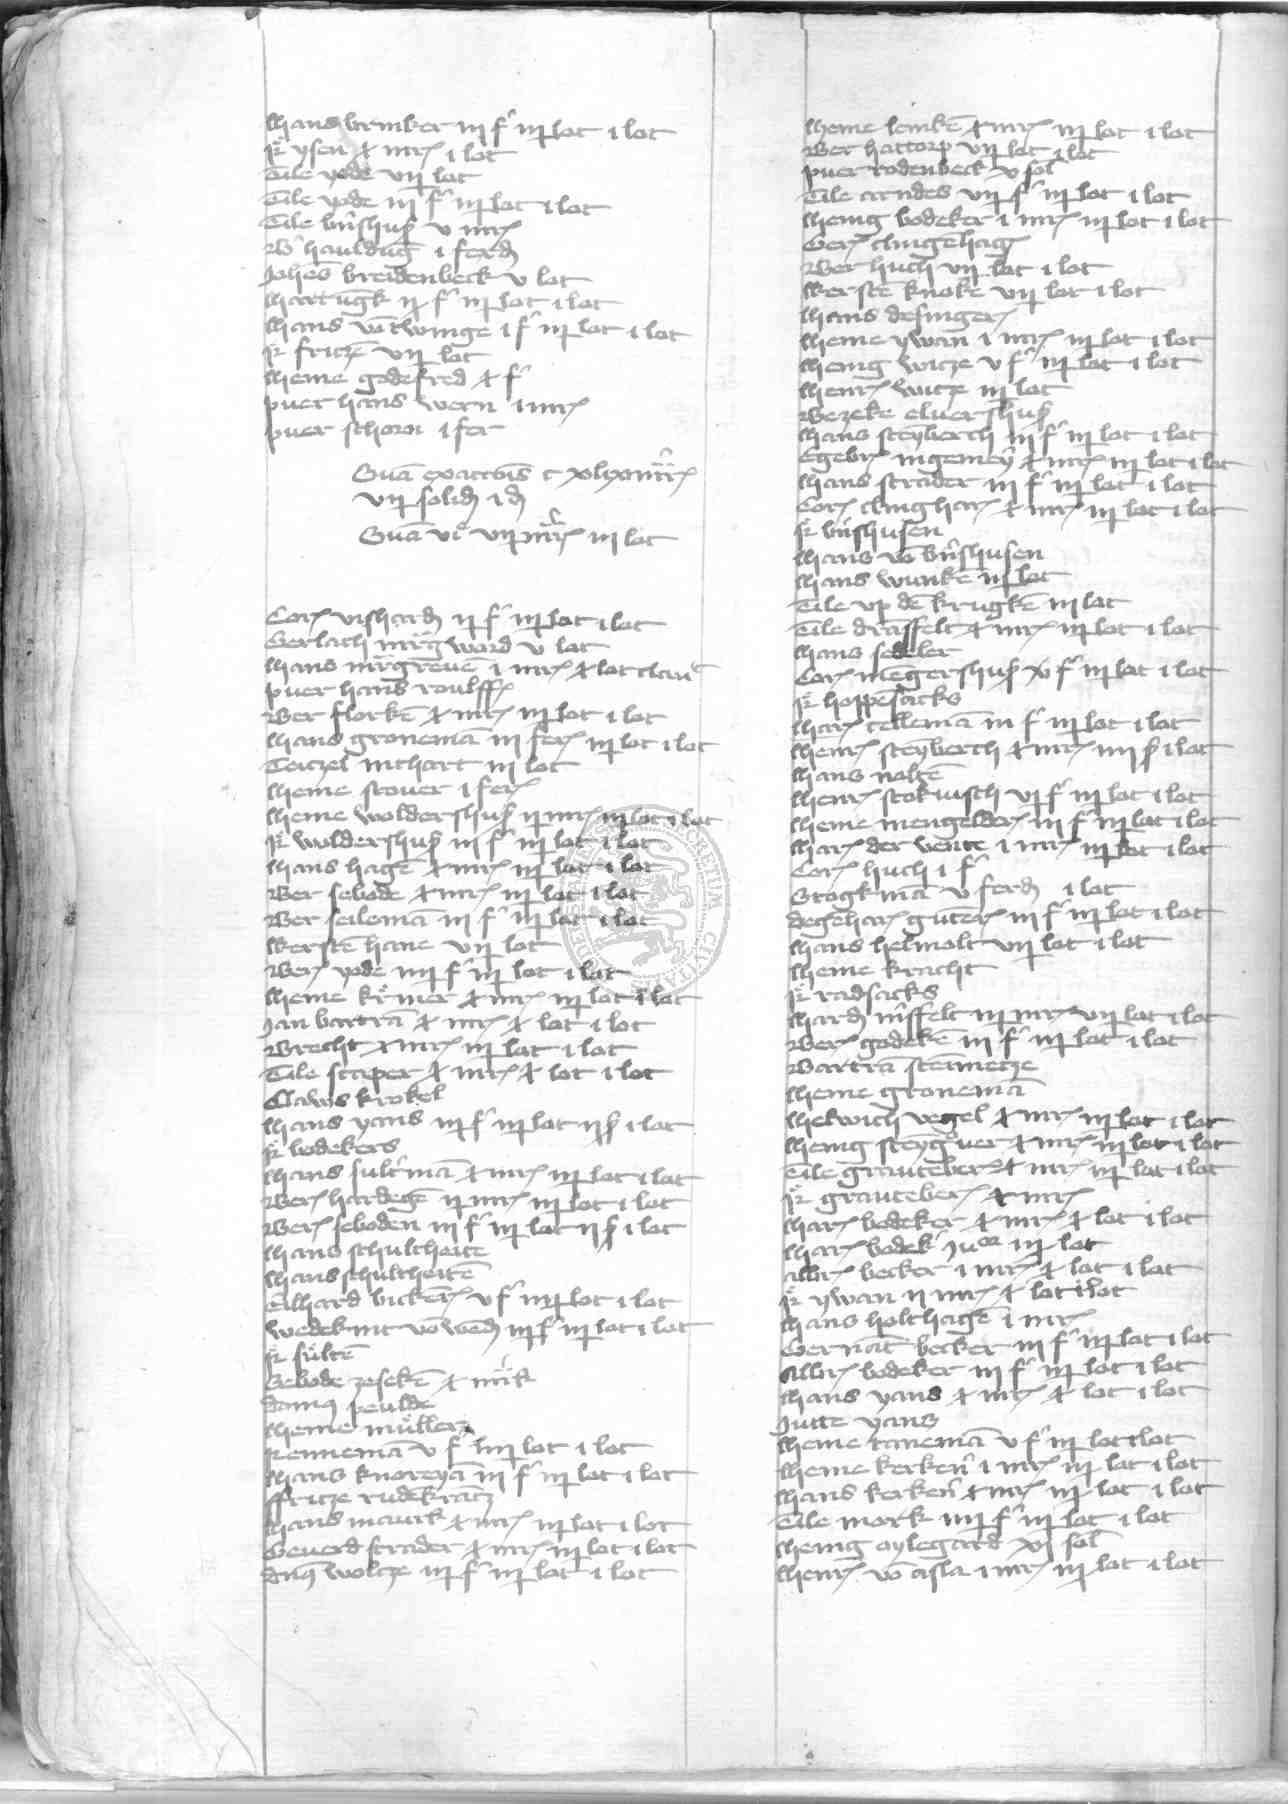 Hans brinker iij f' iij lot i lot
Rͤ ysen ½ mr̄ i lot
Tile yode vij lot
Tile yode iij f' iij lot i lot
Tile bn̄shuß v mr̄
W' hauldūg i ferd
Joh̄es breidenbeck v lot
Hartūgk ij f' iij lot i lot
Hans vō twinge i f' iij lot i lot
Rͤ fritzē vij lot
Heine godefred ½ f'
puer hans wern i mr̄
puer schorn i fer
Suā exacc̄ois c xlix mr̄
vij solid i d
Suā vc vij mr̄ iij lot
Cor̄ vishard ij f' iij lot i lot
Gerlach word v lot
Hans greuen i mr̄ ½ lot
puer hans roulff
Wer florkē ½ mr̄ iij lot i lot
Hans gronemā iij fer̄ iij lot i lot
Teizel nithart iij lot
Heine stouer i fer̄
Heine woldershuß ij mr̄ iij lot i lot
Rͤ woldershuß iij f' iij lot i lot
Hans hagē ½ mr̄ iij lot i lot
Wer sebode ½ mr̄ iij lot i lot
Wer seilemā iij f' iij lot i lot
Kerstē hane vij lot
Wer̄ yode iiij f' iij lot i lot
Heine krͤmer ½ mr̄ iij lot i lot
Jan bartrā ½ mr̄ ½ lot i lot
Brecht x mr̄ iij lot i lot
Tile scaper ½ mr̄ ½ lot i lot
Claws krokel
Hans yans iij f' iij lot ij ß i lot
Rͤ bodekers
Hans sultmā ½ mr̄ iij lot i lot
Wer̄ hardegē ij mr̄ iij lot i lot
Wer̄ seboden iij f' iij lot ij ß i lot
Hans schulcheite
Hans schultheitē
Eilhard bicker̄ v f' iij lot i lot
Wedekint vō wēd iij f' iij lot i lot
Rͤ sultē
Sebode zesekē ½ mrk
peulde
Heine müller
Rennemā v f' iij lot i lot
Hans knoreyā iij f' iij lot i lot
ffritze rudekrātz
Hans maurk ½ mr̄ iij lot i lot
Geuerd strader ½ mr̄ iij lot i lot
woltze iij f' iij lot i lot
Heine lemkē ½ mr̄ iij lot i lot
Wer hattorp vij lot i lot
puer rodenbeck v sol
Tile arndes vij f' iij lot i lot
Heinig bodeker i mr̄ iij lot i lot
Ger̄ clingehag
Wer huch vij lot i lot
Kerstē knoke vij lot i lot
Hans desinger̄
Heine ywan i mr̄ iij lot i lot
Heinig witze v f' iij lot i lot
Henr̄ witze iij lot
Wezeke eluershuß
Hans steyberch iij f' iij lot i lot
Egebr̄ ingemey ½ mr̄ iij lot i lot
Hans strader iij f' iij lot i lot
Cor̄ clinghar̄ ½ mr̄ iij lot i lot
Rͤ bn̄shusen
Hans vō bn̄shusen
Hans wunke iij lot
Tile vp dē krugkē iij lot
Tile drasselt ½ mr̄ iij lot i lot
Hans sedeler
Cor̄ mēgershuß xv f' iij lot i lot
Rͤ hoppēsacks
Har̄ tellemā iij f' iij lot i lot
Henr̄ steyberch ½ mr̄ iiij ß i lot
Hans noltē
Henr̄ stokvisch vj f' iij lot i lot
Heine mengelder̄ iij f' iij lot i lot
Har̄ der vente i mr̄ iij lot i lot
Cor̄ huch i f'
Stogkmā v ferd i lot
degēhar̄ gūter̄ iij f' iij lot i lot
Hans helmolt vij lot i lot
Heine kracht
Rͤ radsacks
Hard nisselt iij mr̄ vij lot i lot
Wer̄ godekē iij f' iij lot i lot
Bartrā steīmetze
Heine gronemā
Helwich vegel ½ mr̄ iij lot i lot
Heinig steygͦuer ½ mr̄ iij lot i lot
Tile grauteber̄ ½ mr̄ iij lot i lot
Rͤ grauteber̄ ½ mr̄
Har̄ bodeker ½ mr̄ ½ lot i lot
Har̄ bodek' Juor iij lot
albr̄ becker i mr̄ ½ lot i lot
Rͤ ywan ij mr̄ ½ lot i lot
Hans holthagē i mr̄
Gernāt becker iij f' iij lot i lot
Albr̄ bodeker iij f' iij lot i lot
Hans yans ½ mr̄ ½ lot i lot
Jutte yans
Heine tanemā v f' iij lot i lot
Heine kerkenr̄ i mr̄ iij lot i lot
Hans kerkenr̄ ½ mr̄ iij lot i lot
Tile mork iiij f' iij lot i lot
Heinig aylegard xi sol
Henr̄ vō asla i mr̄ iij lot i lot